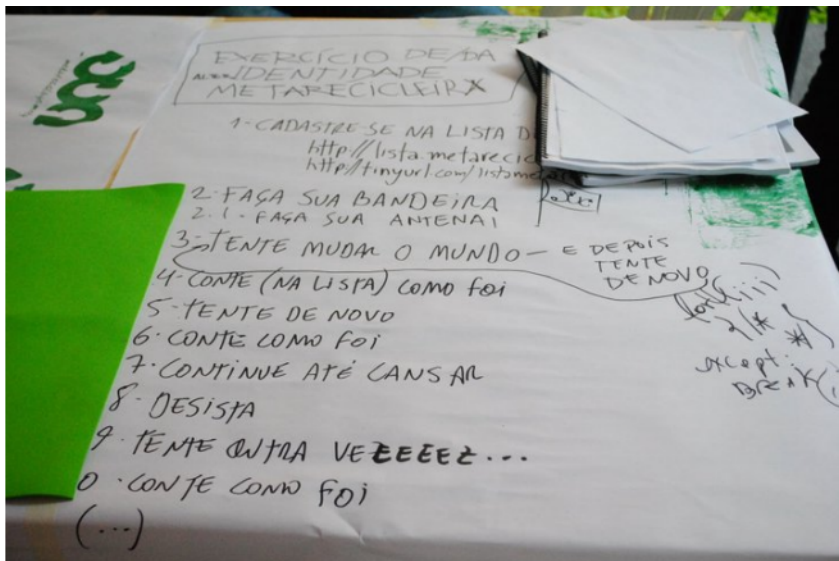 EXERCÍCIO DE/DA
ALTER IDENTIDADE
METARECICLEIRX
1-CADASTRE-SE NA LISTA D
http://lista.metarecic
http://tinyurl.com/listameta
2-FAÇA SUA BANDEIRA
2.1-FAÇA SUA ANTENA!
3-TENTE MUDAR O MUNDO - E DEPOIS
TENTE
DE NOVO
4-CONTE (NA LISTA) COMO FOI
5-TENTE DE NOVO
6-CONTE COMO FOI
7-CONTINUE ATÉ CANSAR
8-DESISTA
9-TENTE OUTRA VEZEEEEZ...
0-CONTE COMO FOI
(...)
for(;;;)
{/*
*/}
except:
BREAK(